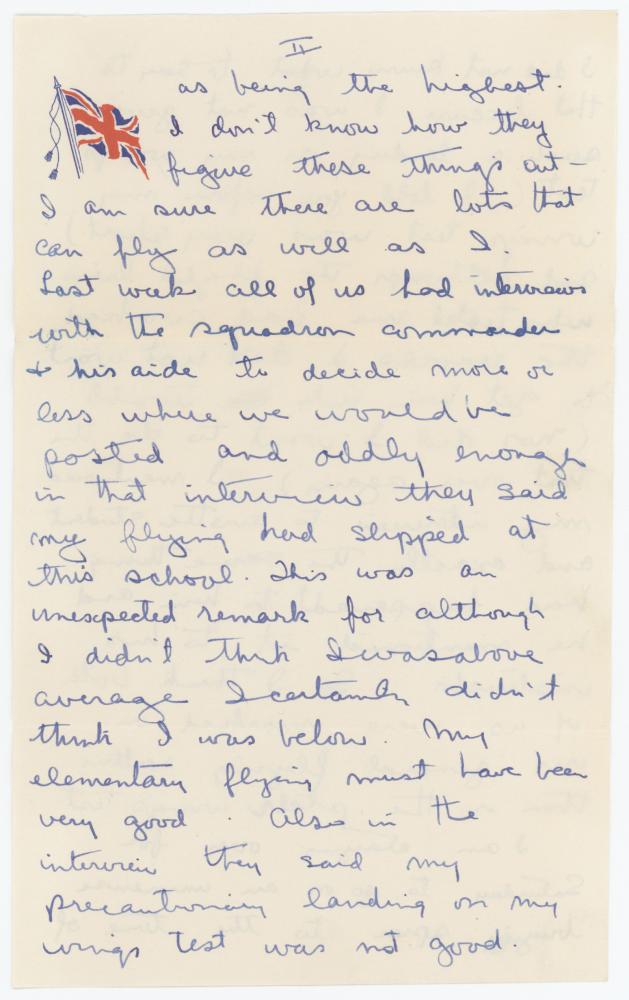 II
as being the highest.
I don't know how they
figure these things out -
I am sure there are lots that
can fly as well as I
Last week all of us had interviews
with the squadron commander
& his aide to decide more or
less where we would be
posted and oddly enough
in that interview they said
my flying had slipped at
this school. This was an
unexpected remark for although
I didn't think I was above
average I certainly didn't
think I was below. My
elementary flying must have been
very good. Also in the
interview they said my
precautionary landing on my
wings test was not good.